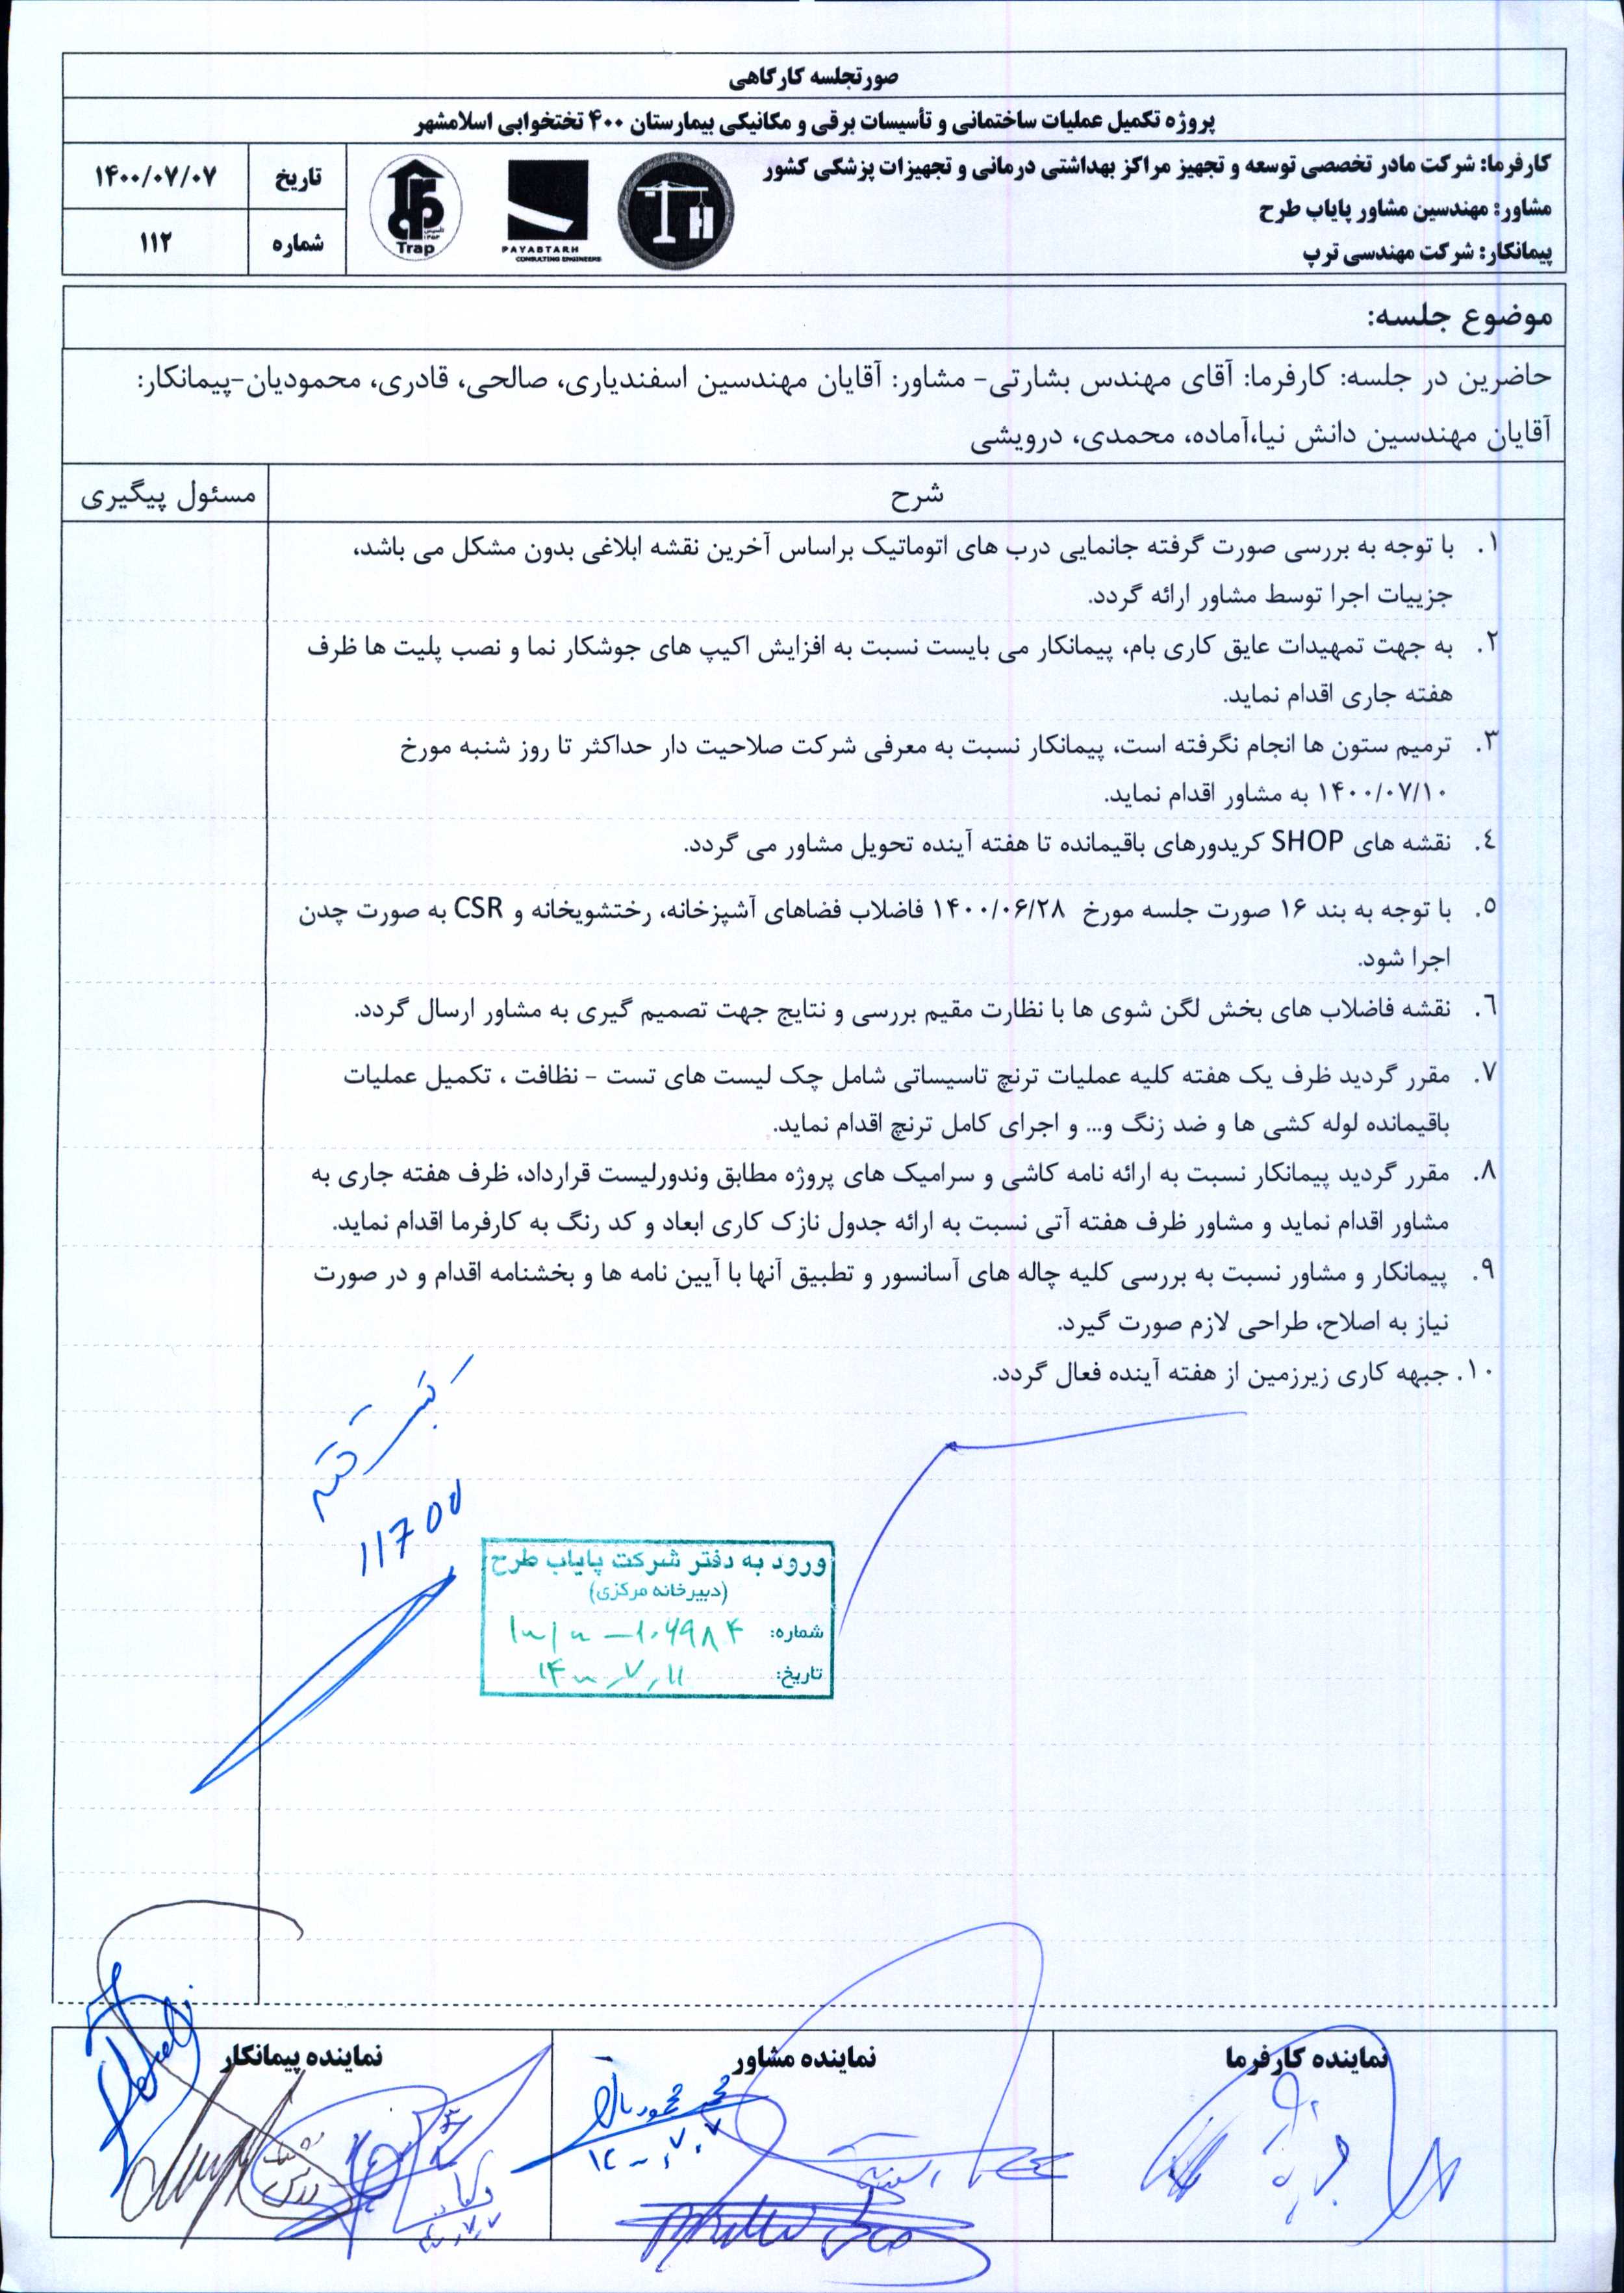 صورتجلسه کارگاهی
پروژه تکمیل عملیات ساختمانی و تأسیسات برقی و مکانیکی بیمارستان ۴۰۰ تختخوابی اسلامشهر
کارفرما: شرکت مادر تخصصی توسعه و تجهیز مراکز بهداشتی درمانی و تجهیزات پزشکی کشور
مشاور: مهندسین مشاور پایاب طرح
پیمانکار: شرکت مهندسی ترپ
PAYABTARH
CONSULTING ENGINEERS
Trap
تاریخ
۱۴۰۰/۰۷/۰۷
شماره
۱۱۲
موضوع جلسه:
حاضرین در جلسه: کارفرما: آقای مهندس بشارتی- مشاور: آقایان مهندسین اسفندیاری، صالحی، قادری، محمودیان-پیمانکار:
آقایان مهندسین دانش نیا،آماده، محمدی، درویشی
شرح
مسئول پیگیری
۱. با توجه به بررسی صورت گرفته جانمایی درب های اتوماتیک براساس آخرین نقشه ابلاغی بدون مشکل می باشد،
جزییات اجرا توسط مشاور ارائه گردد.
۲. به جهت تمهیدات عایق کاری بام، پیمانکار می بایست نسبت به افزایش اکیپ های جوشکار نما و نصب پلیت ها ظرف
هفته جاری اقدام نماید.
۳. ترمیم ستون ها انجام نگرفته است، پیمانکار نسبت به معرفی شرکت صلاحیت دار حداکثر تا روز شنبه مورخ
۱۴۰۰/۰۷/۱۰ به مشاور اقدام نماید.
٤. نقشه های SHOP کریدورهای باقیمانده تا هفته آینده تحویل مشاور می گردد.
٥. با توجه به بند ۱۶ صورت جلسه مورخ ۱۴۰۰/۰۶/۲۸ فاضلاب فضاهای آشپزخانه، رختشویخانه و CSR به صورت چدن
اجرا شود.
٦. نقشه فاضلاب های بخش لگن شوی ها با نظارت مقیم بررسی و نتایج جهت تصمیم گیری به مشاور ارسال گردد.
۷. مقرر گردید ظرف یک هفته کلیه عملیات ترنچ تاسیساتی شامل چک لیست های تست – نظافت ، تکمیل عملیات
باقیمانده لوله کشی ها و ضد زنگ و... و اجرای کامل ترنچ اقدام نماید.
۸. مقرر گردید پیمانکار نسبت به ارائه نامه کاشی و سرامیک های پروژه مطابق وندورلیست قرارداد، ظرف هفته جاری به
مشاور اقدام نماید و مشاور ظرف هفته آتی نسبت به ارائه جدول نازک کاری ابعاد و کد رنگ به کارفرما اقدام نماید.
۹. پیمانکار و مشاور نسبت به بررسی کلیه چاله های آسانسور و تطبیق آنها با آیین نامه ها و بخشنامه اقدام و در صورت
نیاز به اصلاح، طراحی لازم صورت گیرد.
۱۰. جبهه کاری زیرزمین از هفته آینده فعال گردد.
ورود به دفتر شرکت پایاب طرح
(دبیرخانه مرکزی)
شماره:
تاریخ: ۱۴۰۰/۷/۱۱
نماینده کارفرما
نماینده مشاور
نماینده پیمانکار